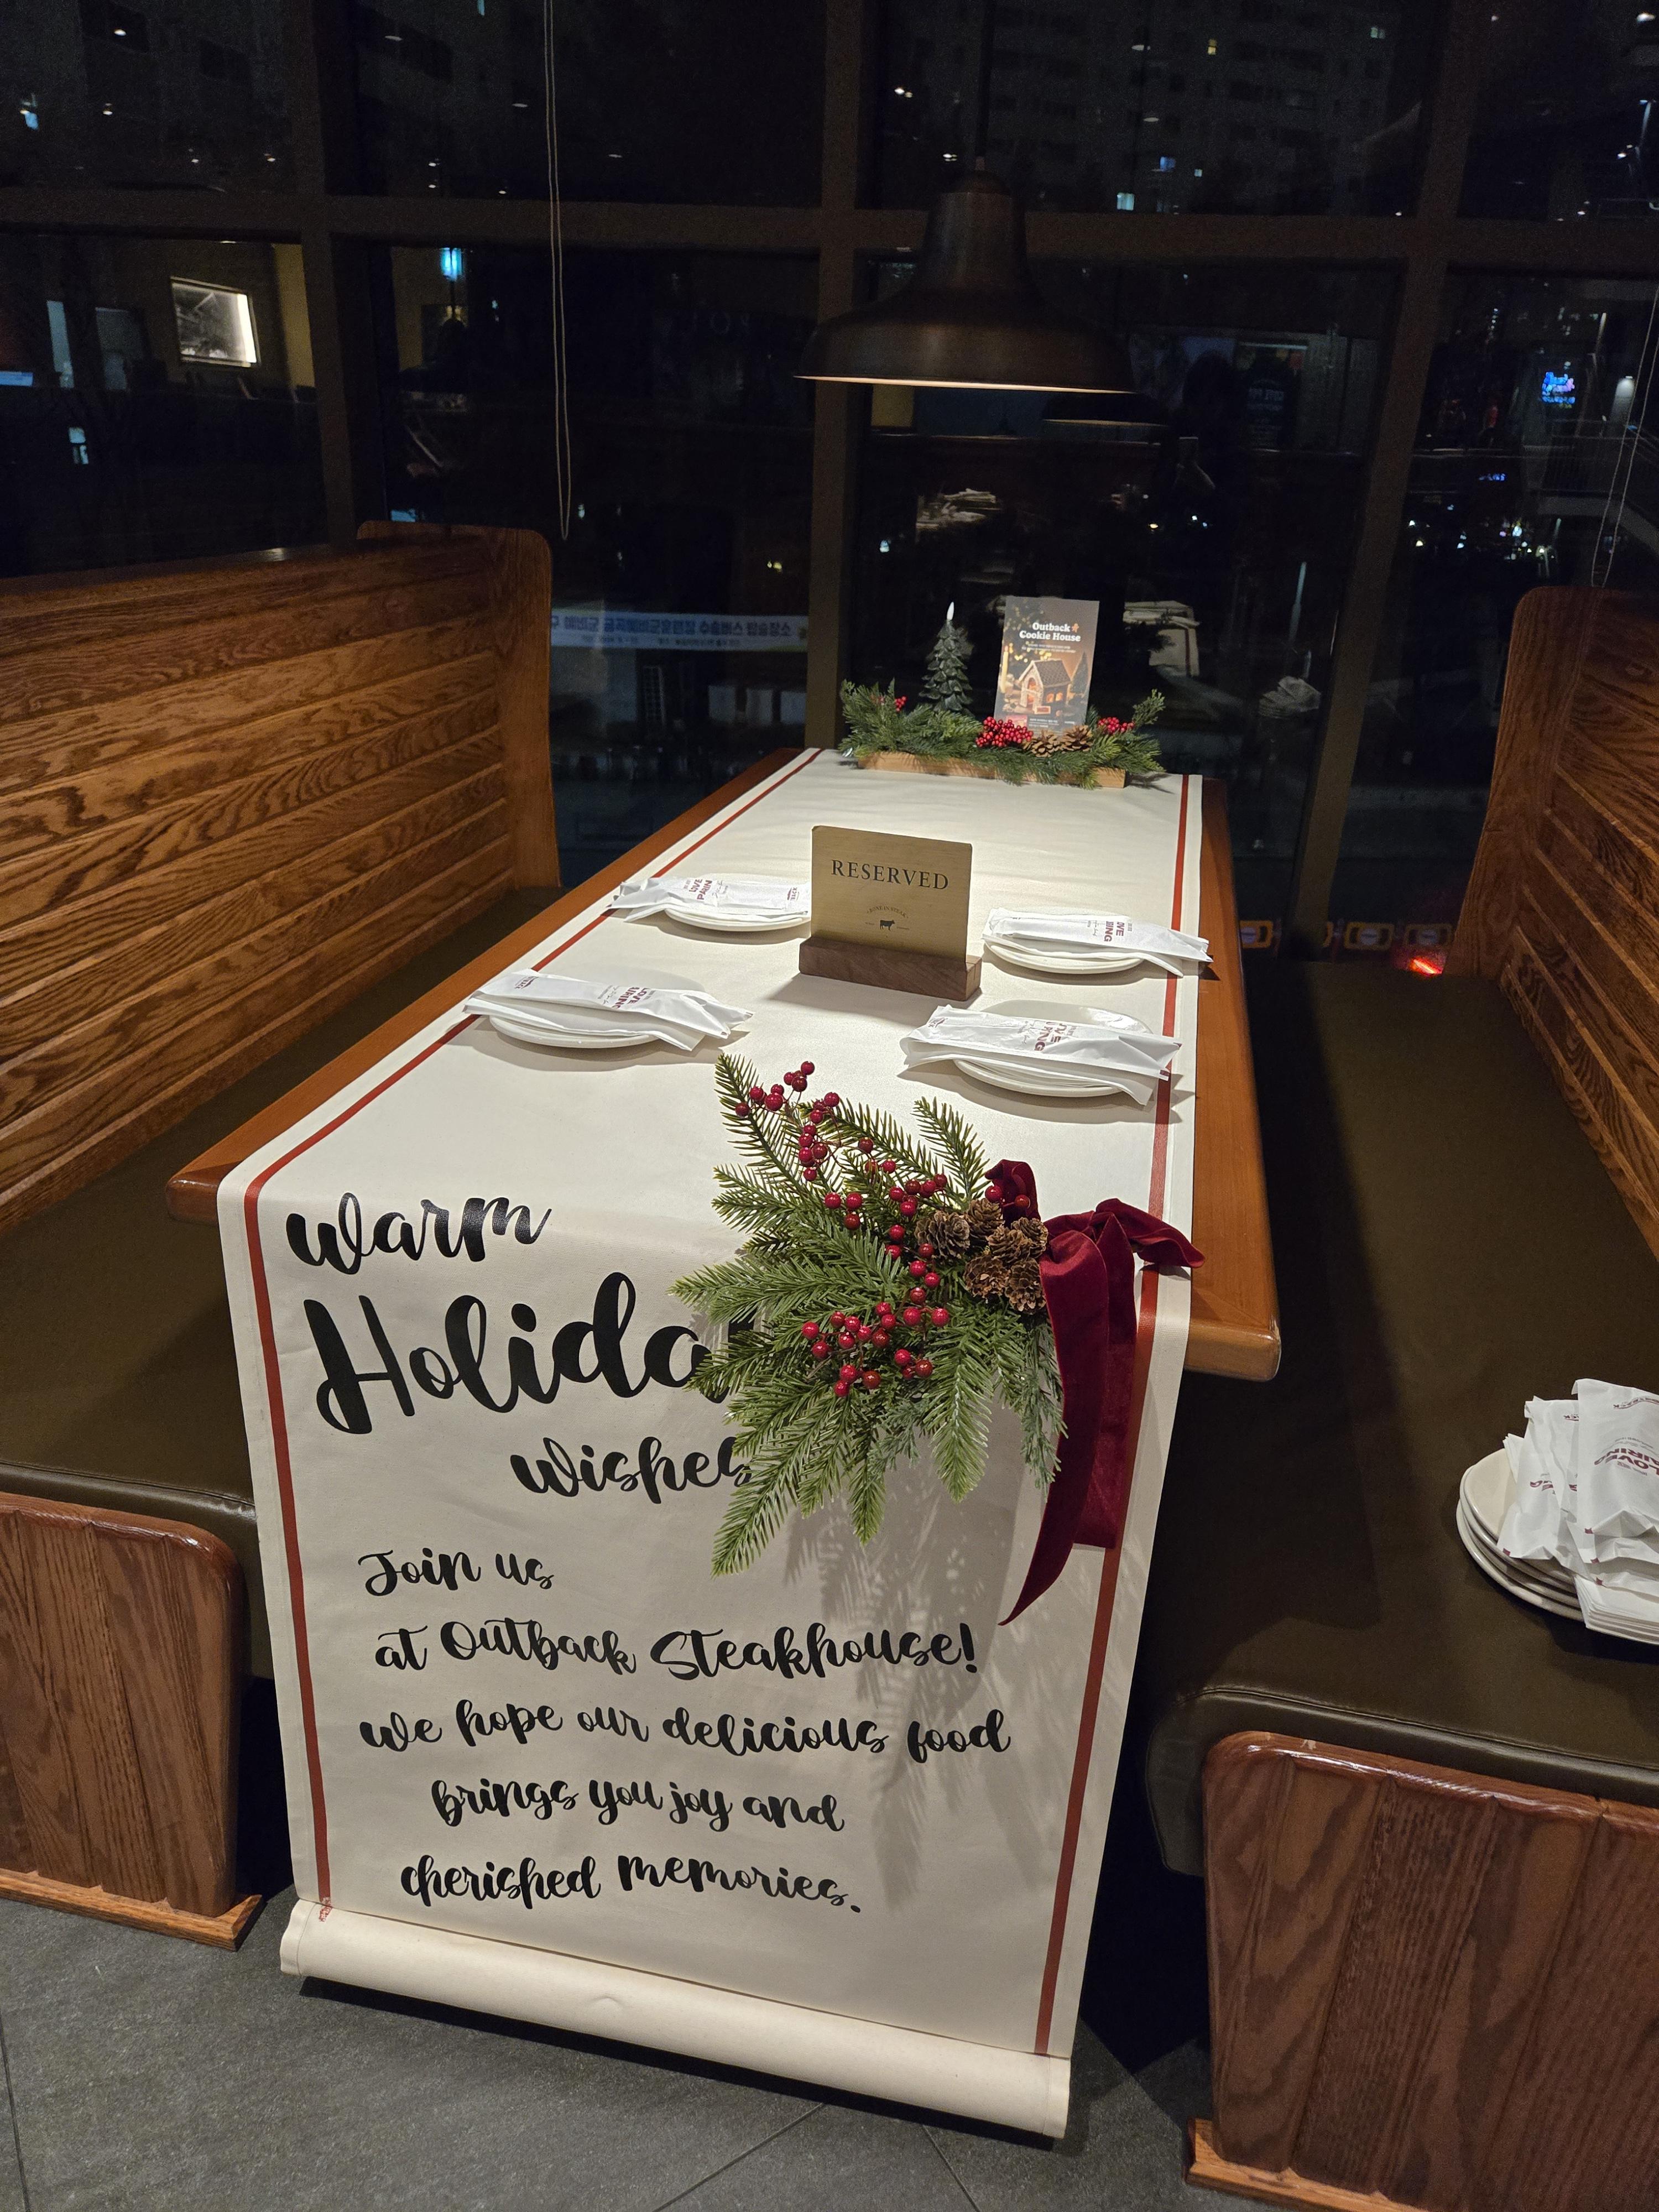 구 예비군 금곡예비군훈련장 수송버스 탑승장소
Outback
Cookie House
RESERVED
warm
Holida
wishes
Join us
at Outback Steakhouse!
we hope our delicious food
brings you joy and
cherished memories.